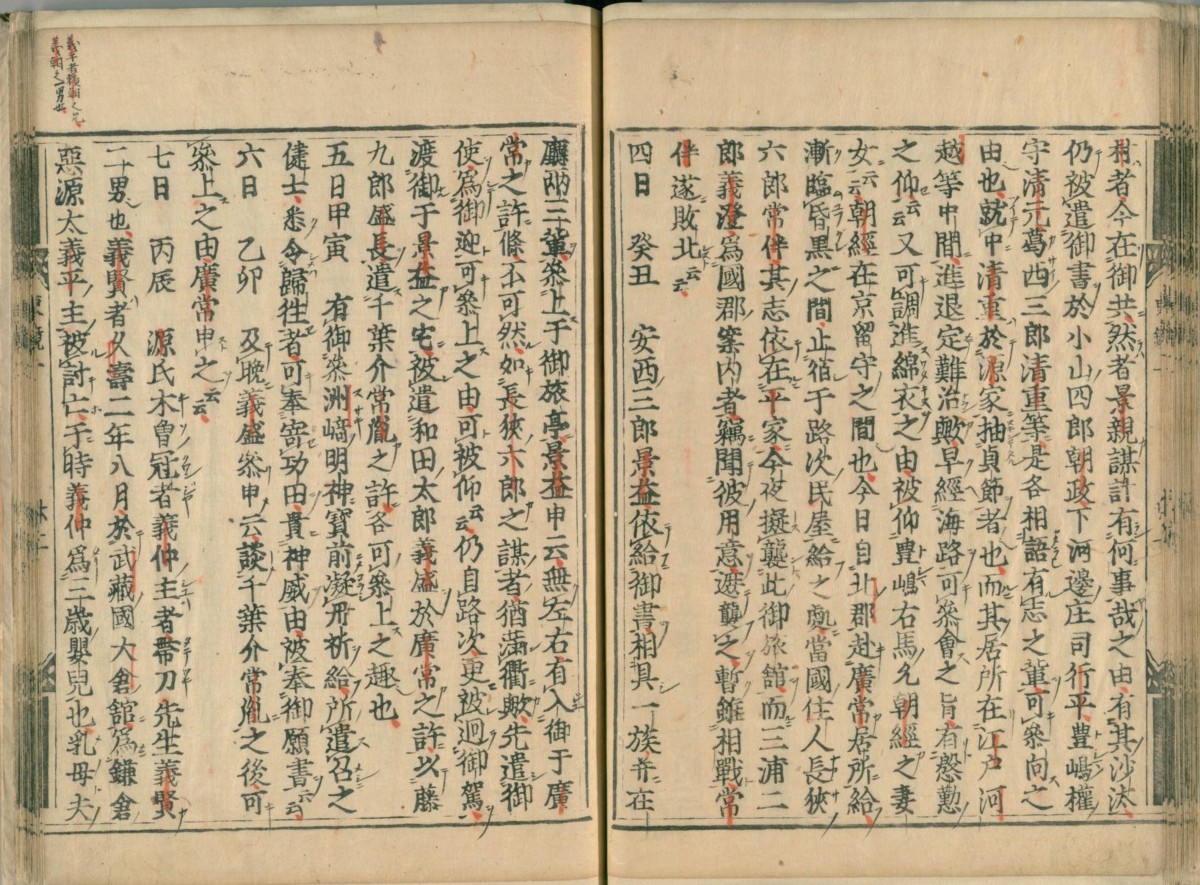 相者今在御共然者景親謀計有何事哉之由有其沙汰
仍被遣御書於小山四郎朝政下河邊庄司行平豊嶋權
守清元葛西三郎清重等是各相語有志之輩可參向之
由也就中清重於源家抽貞節者也而其居所在江戸河
越等中間進退定難治歟早經海路可參會之旨有慇懃
之仰云云又可調進綿衣之由被仰豊嶋右馬允朝經之妻
女云云朝經在京留守之間也今日自北郡赴廣常居所給
漸臨昏黑之間止宿于路次民屋給之處當國住人長狹
六郎常伴其志依在平家今夜擬襲此御旅館而三浦二
郎義澄爲國郡案内者竊聞彼用意遮襲之暫雖相戰常
伴遂敗北云云
四日　癸丑　安西三郎景益依給御書相具一族并在
廳兩三輩參上于御旅亭景益申云無左右有入御于廣
常之許條不可然如長狹六郎之謀者猶滿衢歟先遣御
使爲御迎可參上之由可被仰云云仍自路次更被廻御駕
渡御于景益之宅被遣和田太郎義盛於廣常之許以藤
九郎盛長遣千葉介常胤之許各可參上之趣也
五日甲寅　有御參洲崎明神寶前凝丹祈給所遣召之
健士悉令歸往者可奉寄功田賁神威由被奉御願書云云
六日　乙卯　及晩義盛參申云談千葉介常胤之後可
參上之由廣常申之云云
七日　丙辰　源氏木曽冠者義仲主者帶刀先生義賢
二男也義賢者久壽二年八月於武藏國大倉館爲鎌倉
惡源太義平主被討亡于時義仲爲三歳嬰兒也乳母夫
義平者頼朝之兄
義朝之一男也